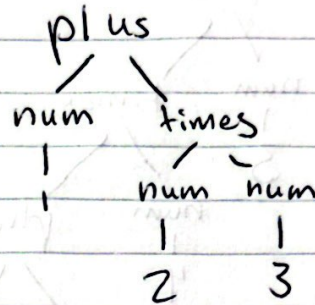 plus
num times
1 num num
2 3